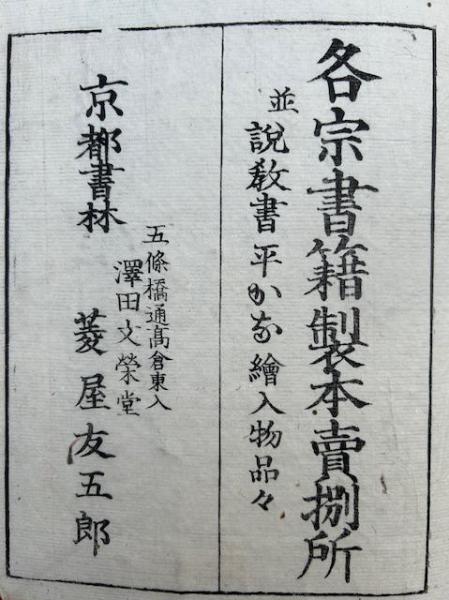 各宗書籍製本賣捌所
並說敎書平かな繪入物品々
五條橋通髙倉東入
澤田文榮堂
京都書林 菱屋友五郎